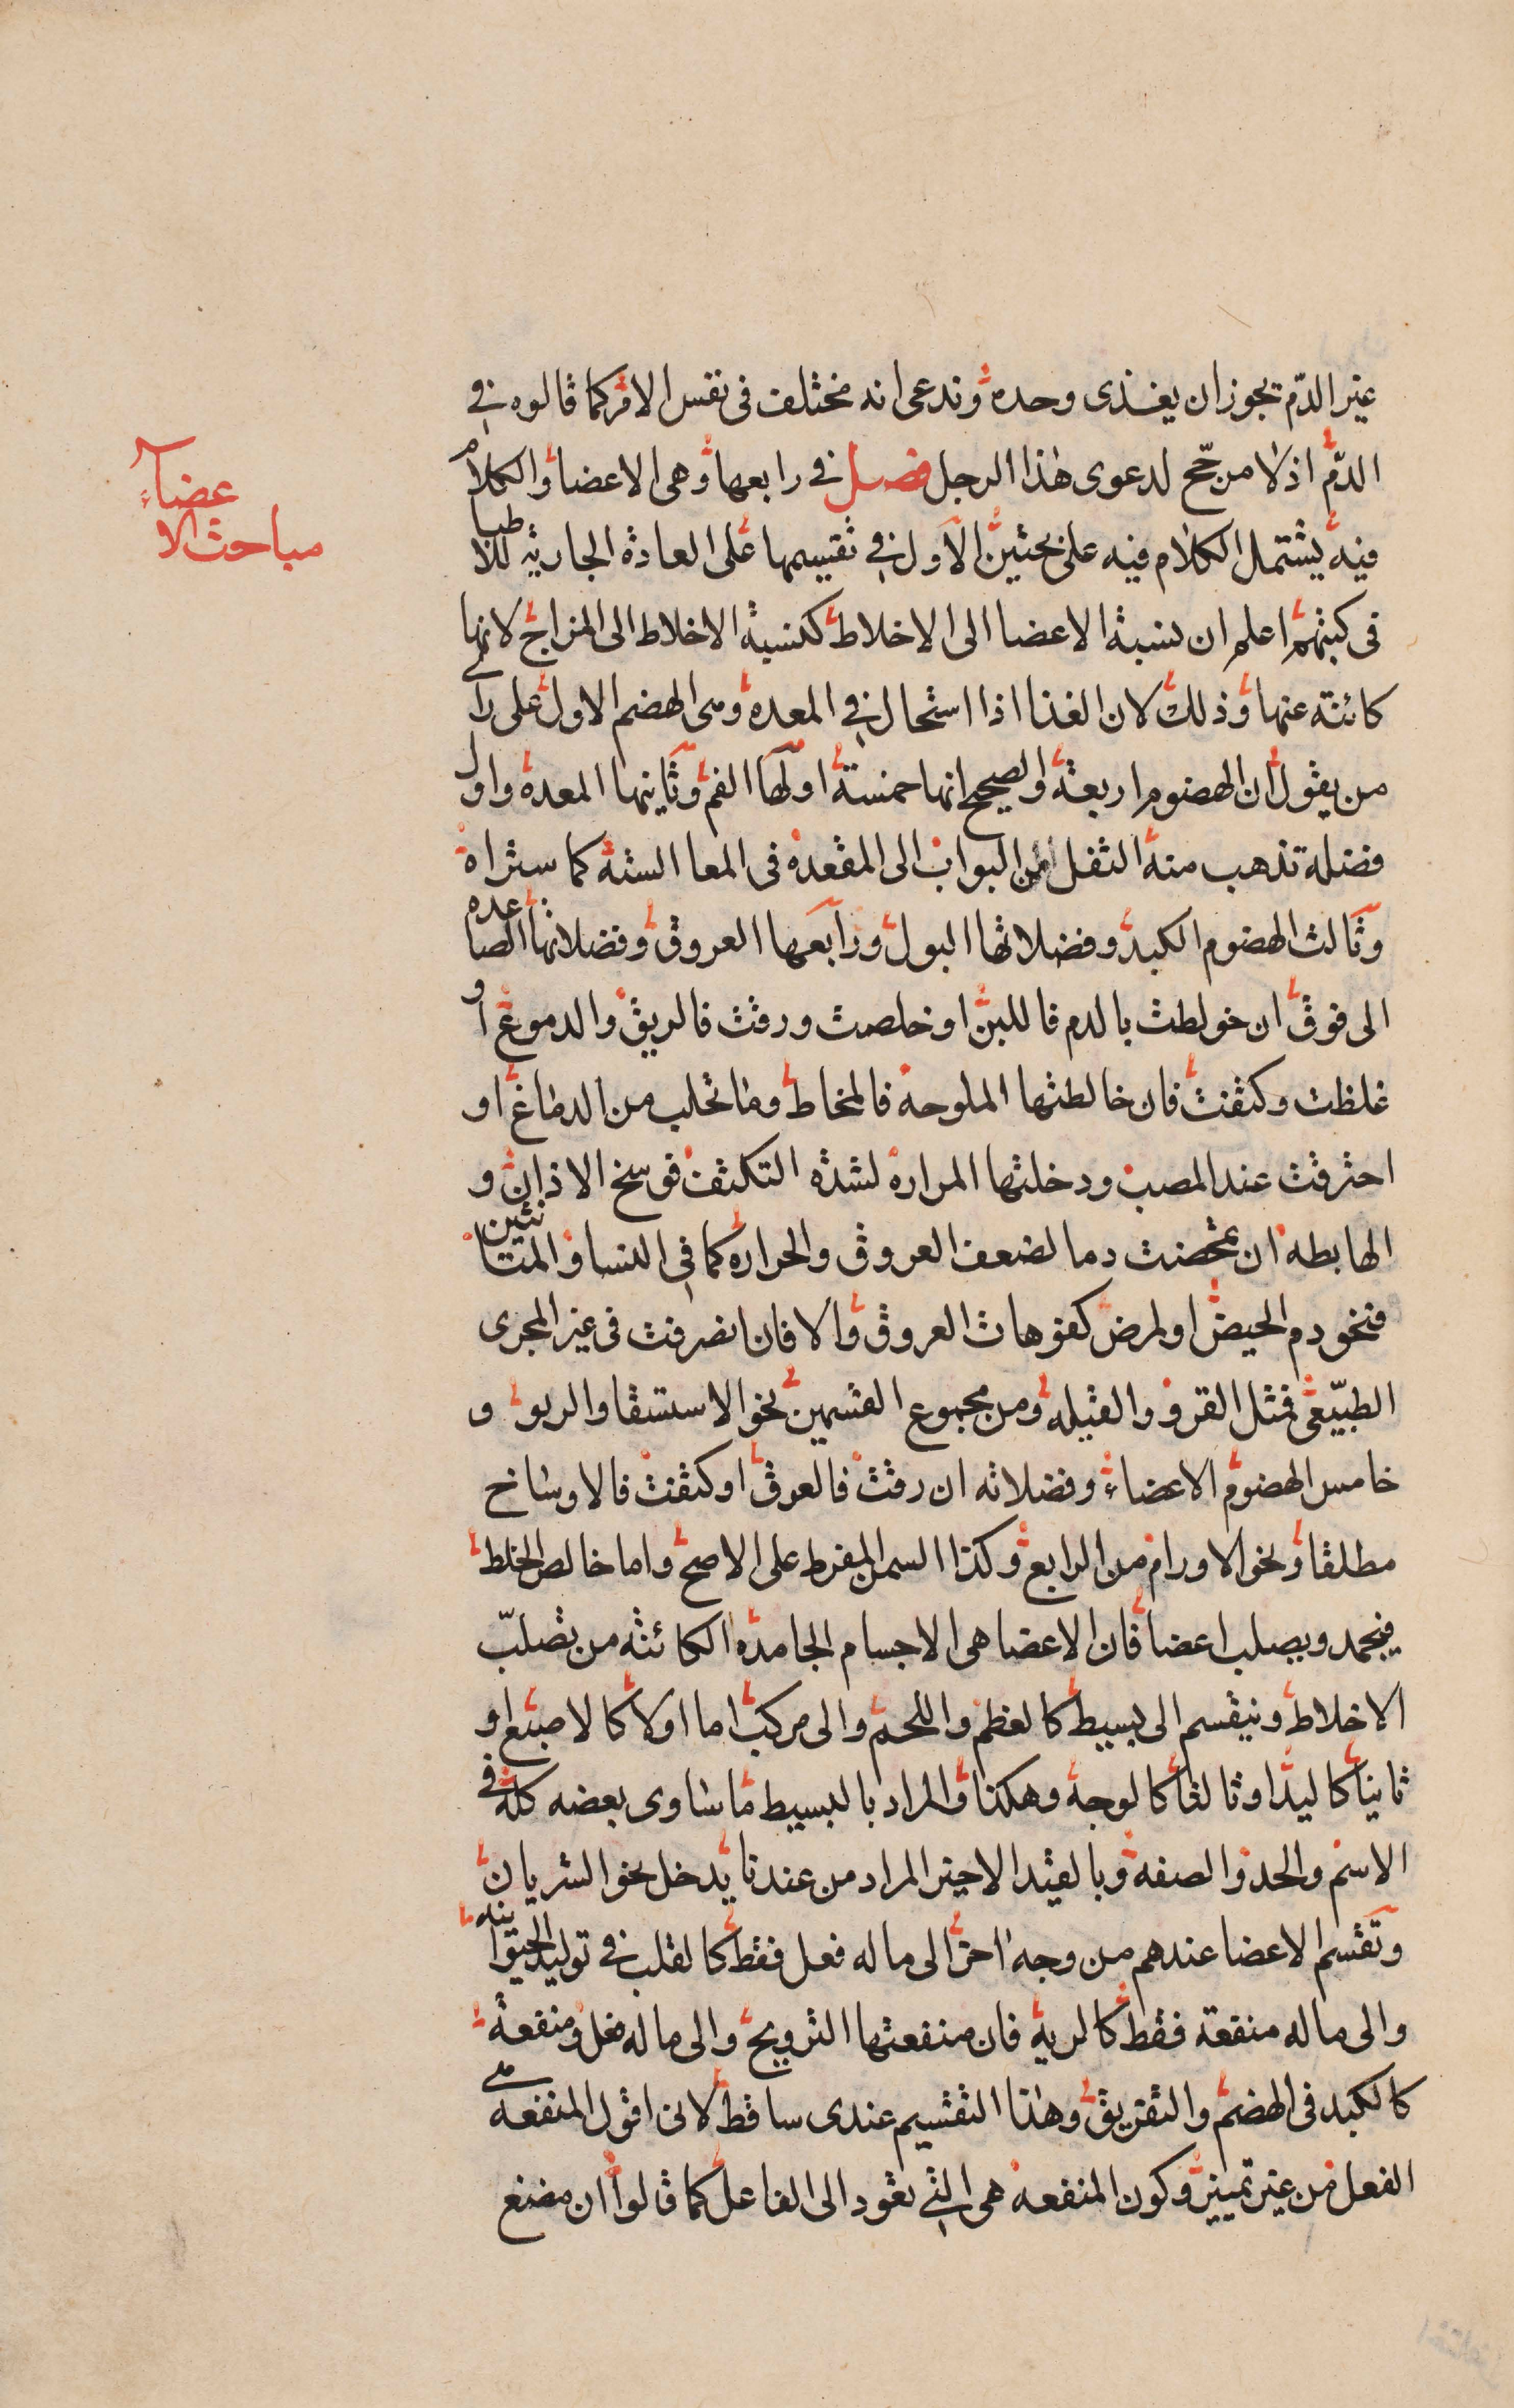 غير الدّم يجوز ان يغذى وحده وندعى انه مختلف فى نفس الامر كما قالوه في
الدّم اذ لا مرجّح لدعوى هذا الرجل فصل في رابعها وهى الاعضا والكلام
فيه يشتمل الكلام فيه على بحثين الاول في تقسيمها على العادة الجارية للاطبا
فى كتبهم اعلم ان نسبة الاعضا الى الاخلاط كنسبة الاخلاط الى المزاج لانها
كائنة عنها وذلك لان الغذا اذا استحال في المعده وهى الهضم الاول على راى
من يقول ان الهضوم اربعة والصحيح انها خمسة اولها الفم وثانيها المعدة واول
فضله تذهب منه الثفل من البواب الى المقعدة فى المعا الستة كما ستراه
وثالث الهضوم الكبد وفضلاتها البول ورابعها العروق وفضلاتها الصاعده
الى فوق ان خولطت بالدم فاللبن او خلصت ورقت فالريق والدموع او
غلظت وكثفت فان خالطتها الملوحة فالمخاط وما تحلب من الدماغ او
احترقت عند المصب ودخلتها المرارة لشدة التكثف فوسخ الاذان و
الهابطه ان تمحضت دما لضعف العروق والحرارة كما في النسا والمتانثين
فنحو دم الحيض او لمرض كفوهات العروق والا فان انصرفت فى غير المجرى
الطبيعى فمثل القرو والقيله ومن مجموع القسمين نحو الاستسقا والربو و
خامس الهضوم الاعضاء وفضلاته ان رقت فالعرق او كثفت فالاوساخ
مطلقا ونحو الاورام من الرابع وكذا السمن المفرط على الاصح واما خالص الخلط
فيجمد ويصلب اعضا فان الاعضا هى الاجسام الجامدة الكائنة من تصلّب
الاخلاط وينقسم الى بسيط كالعظم واللحم والى مركب اما اولا كالاصبع او
ثانيا كاليد او ثالثا كالوجه وهكذا والمراد بالبسيط ما ساوى بعضه كله فى
الاسم والحد والصفه وبالقيد الاخير المراد من عندنا يدخل نحو الشريان
وتقسم الاعضا عندهم من وجه اخر الى ما له فعل فقط كالقلب فى توليد الحيوانيه
والى ما له منفعة فقط كالرية فان منفعتها الترويح والى ما له فعل ومنفعة
كالكبد فى الهضم والتفريق وهذا التقسيم عندى ساقط لانى اقول المنفعه هى
الفعل من غير تمييز وكون المنفعه هى التى تعود الى الفاعل كما قالوا ان مضغ
مباحث الاعضاء